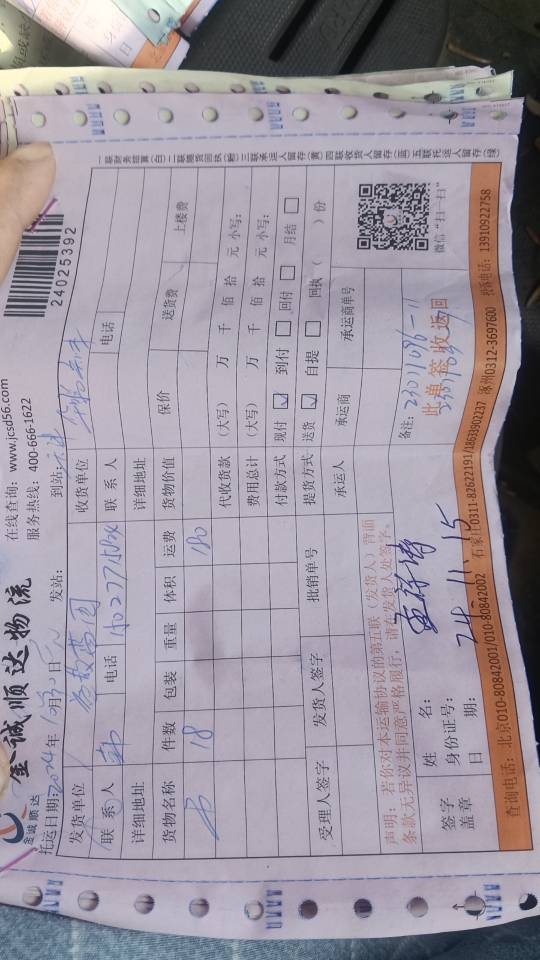 金诚顺达
金诚顺达物流
在线查询：www.jcsd56.com
服务热线：400-666-1622
24025392
托运日期:2024年10月31日
发站：
到站:天津
发货单位
收货单位
联系人
电话
联系人
电话
详细地址
详细地址
货物名称 件数 包装 重量 体积 运费 货物价值 保价 送货费 上楼费
书 18 180
代收货款 （大写） 万 千 佰 拾 元 小写：
费用总计 （大写） 万 千 佰 拾 元 小写：
付款方式 现付 ☑ 到付 □ 回付 □ 月结 □
提货方式 送货 ☑ 自提 □ 回执（ ）份
受理人签字 发货人签字 批销单号 承运人 承运商 承运商单号
声明：若你对本运输协议的第五联（发货人）背面
条款无异议并同意严格履行，请在发货人处签字。
备注：
此单签收返回
微信“扫一扫”
签字
盖章
姓 名：
身份证号：
日 期：
24.11.15
查询电话：北京010-80842001/010-80842002 石家庄0311-82622191/18633902237 涿州0312-3697600 投诉电话：13910922758
一联财务结算(白) 二联随货回执(粉) 三联承运人留存(黄) 四联收货人留存(蓝) 五联托运人留存(绿)